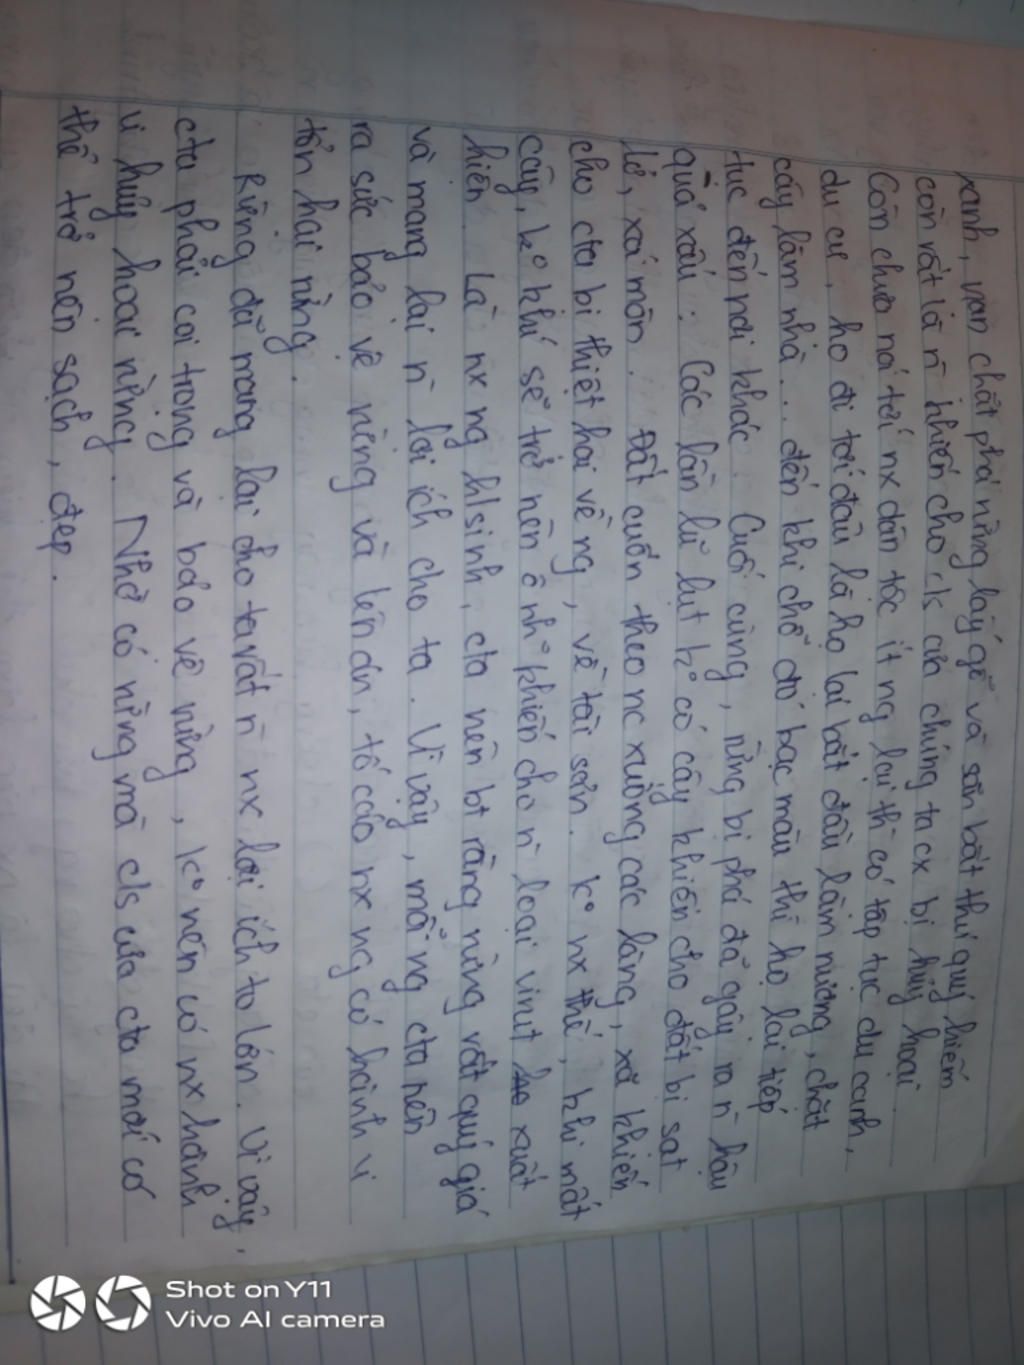 xanh, vạn chặt phá rừng lấy gỗ và săn bắt thú quý hiếm
còn rất là n̄ khiến cho c/s của chúng ta cx bị hủy hoại.
Còn chưa nói tới nx dân tộc ít ng lại thì có tập tục du canh,
du cư, họ đi tới đâu là họ lại bắt đầu làm nương, chặt
cây làm nhà... đến khi chỗ đó bạc màu thì họ lại tiếp
tục đến nơi khác. Cuối cùng, rừng bị phá đã gây ra n̄ hậu
quả xấu: Các lần lũ lụt ko có cây khiến cho đất bị sạt
lở, xói mòn. Đất cuốn theo nc xuống các làng, xã khiến
cho cta bị thiệt hại về ng, về tài sản. Ko nx thế, khi mất
cây, ko khí sẽ trở nên ô nh° khiến cho n̄ loại virut xuất
hiện. Là nx ng h/sinh, cta nên bt rằng rừng rất quý giá
và mang lại n̄ lợi ích cho ta. Vì vậy, mỗi ng cta nên
ra sức bảo vệ rừng và lên án, tố cáo nx ng có hành vi
tổn hại rừng.
Rừng đã mang lại cho ta rất n̄ nx lợi ích to lớn. Vì vậy,
cta phải coi trọng và bảo vệ rừng, ko nên có nx hành
vi hủy hoại rừng. Nhờ có rừng mà c/s của cta mới có
thể trở nên sạch, đẹp.
Shot on Y11
Vivo AI camera